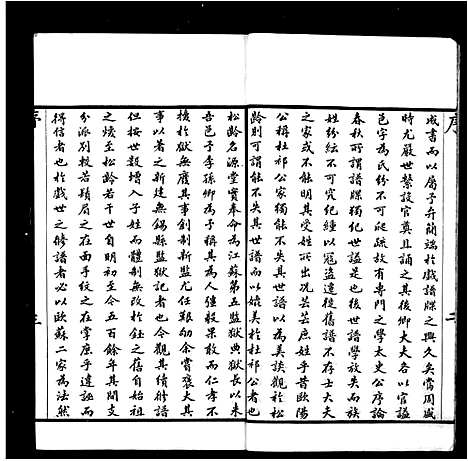 序
成書而以屬予弁簡端於戲譜牒之興久矣當周盛
時尤嚴世繫設官奠且誦之其後鄉大夫各以官謚
邑字為氏紛不可爬疏故有專門之學太史公序論
春秋所謂譜牒紀世謚是也世譜學放失而族
姓紛紜不可究紀纏以寇盜遷徙舊譜不存士大夫
之家或不能明其受姓所出况芸芸庶姓乎昔歐陽
公稱杜祁公家獨能不失其世譜以為美談觀於松
齡則可謂能不失其世譜而以媲美於杜祁公者也
松齡名源堂實奉命為江蘇第五監獄典獄長以來
吾邑予季孫卿為予稱其為人強毅果敢而仁孝不
後於獄無廢其事創制新監尤任艱勞余嘗褒大其
事以著之新建無錫縣監獄記者也今觀其續修譜
但按世數增入子姓而體制無改於鈺之舊自始祖
之煃至松齡若干世自明初至今五百餘年其間支
分派别較若鬚眉之在面手紋之在掌庶乎遠誣而
得信者也於戲世之修譜者必以歐蘇二家為法然
二
三